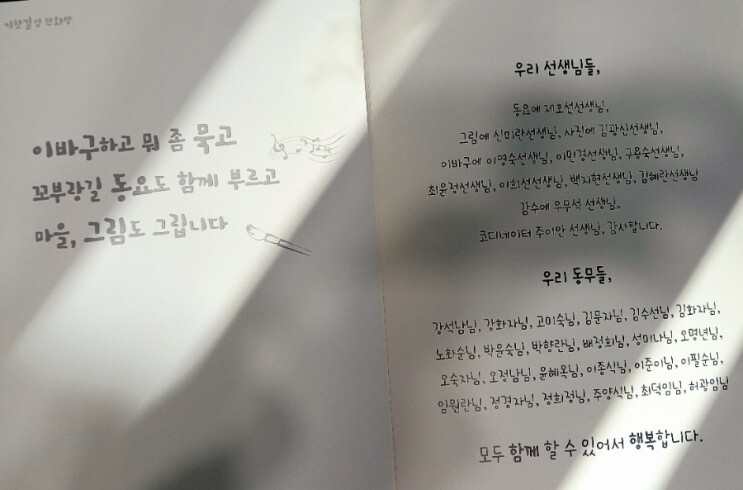 이바구하고 뭐 좀 묵고
꼬부랑길 동요도 함께 부르고
마을, 그림도 그립니다
우리 선생님들,
동요에 제호선선생님,
그림에 신미란선생님, 사진에 김광신선생님,
이바구에 이영숙선생님, 이민경선생님, 구용숙선생님,
최윤정선생님, 이희선선생님, 백지현선생님, 김혜란선생님
감수에 우무석 선생님,
코디네이터 주이안 선생님, 감사합니다.
우리 동무들,
강석남님, 강화자님, 고미숙님, 김문자님, 김수선님, 김화자님,
노화순님, 박윤숙님, 박향란님, 배정희님, 성미나님, 오명년님,
오숙자님, 오정남님, 윤혜옥님, 이종식님, 이준이님, 이필순님,
임원란님, 정경자님, 정희정님, 주양식님, 최덕임님, 허광임님
모두 함께 할 수 있어서 행복합니다.